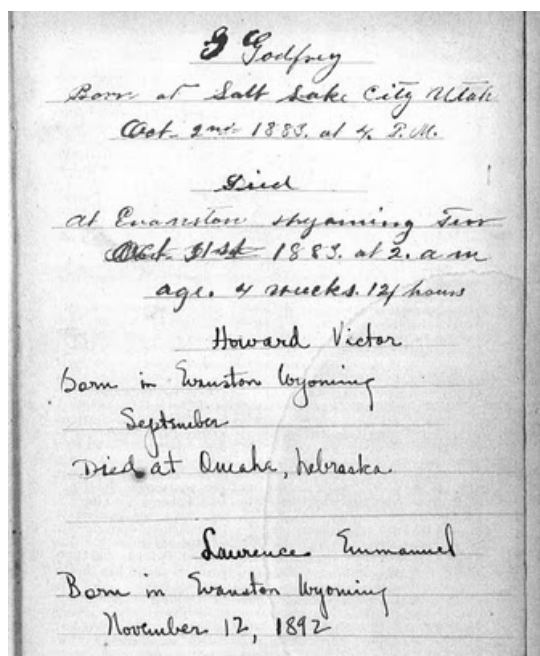 G Godfrey
Born at Salt Lake City Utah
Oct. 2nd 1883. at 4. P.M.
Died
At Evanston Wyoming Terr
Oct. 31st 1883. at 2. a m
age. 4 weeks. 12 hours
Howard Victor
born in Evanston Wyoming
September
Died at Omaha, Nebraska
Lawrence Emmanuel
Born in Evanston Wyoming
November 12, 1892